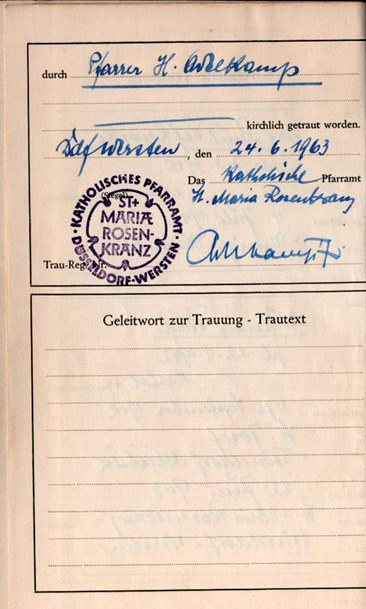 durch Pfarrer H. Adelkamp
kirchlich getraut worden.
Ddf Wersten, den 24. 6. 1963
Das Katholische Pfarramt
(Siegel) H. Maria Rosenkranz
KATHOLISCHES PFARRAMT
ST.
MARIÄ
ROSEN-
KRANZ
DÜSSELDORF-WERSTEN
Trau-Reg. Nr.
Geleitwort zur Trauung - Trautext